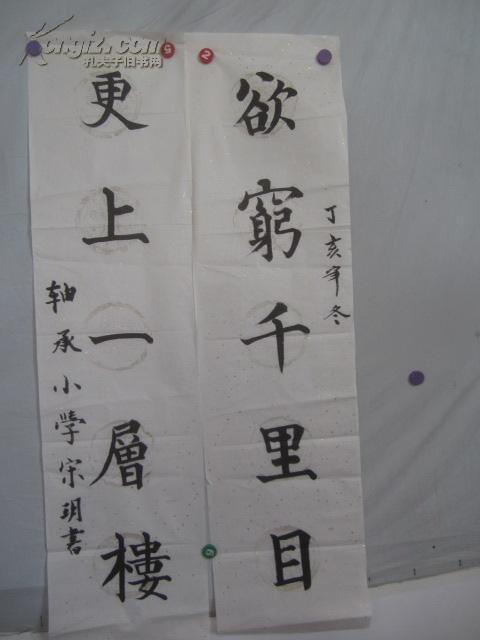 欲窮千里目
丁亥年冬
更上一層樓
轴承小學宋玥書
Kongfz.com
孔夫子旧书网
2
6